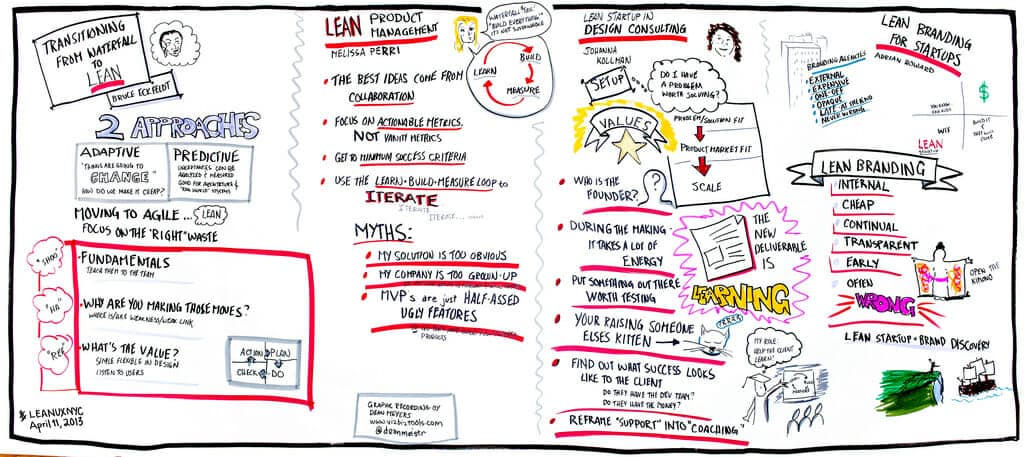 TRANSITIONING
FROM WATERFALL
TO
LEAN
BRUCE ECKFELDT
2 APPROACHES
ADAPTIVE
"THINGS ARE GOING TO
CHANGE"
HOW DO WE MAKE IT CHEAP?
PREDICTIVE
UNCERTAINTIES CAN BE
ANALYZED & MEASURED
GOOD FOR ARCHITECTURE &
MOVING TO AGILE... LEAN
FOCUS ON THE "RIGHT" WASTE
"SHOO"
"HA"
"REE"
• FUNDAMENTALS
TEACH THEM TO THE TEAM
• WHY ARE YOU MAKING THOSE MOVES?
WHERE IS/ARE WEAKNESS/WEAK LINK
• WHAT'S THE VALUE?
SIMPLE FLEXIBLE IN DESIGN
LISTEN TO USERS
ACTION PLAN
CHECK DO
LEANUXNYC
April 11, 2013
LEAN PRODUCT
MANAGEMENT
MELISSA PERRI
"BUILD EVERYTHING"
IT'S NOT SUSTAINABLE
LEARN
BUILD
MEASURE
• THE BEST IDEAS COME FROM
COLLABORATION
• FOCUS ON ACTIONABLE METRICS,
NOT VANITY METRICS
• GET TO MINIMUM SUCCESS CRITERIA
• USE THE LEARN-BUILD-MEASURE LOOP to
ITERATE
ITERATE
ITERATE...
MYTHS:
• MY SOLUTION IS TOO OBVIOUS
• MY COMPANY IS TOO GROWN-UP
• MVP's are just HALF-ASSED
UGLY FEATURES
PRODUCTS
GRAPHIC RECORDING BY
DEAN MEYERS
www.vizbiztools.com
@deanmeistr
LEAN STARTUP IN
DESIGN CONSULTING
JOHANNA
KOLLMAN
SETUP
DO I HAVE
A PROBLEM
WORTH SOLVING?
VALUES
PROBLEM/SOLUTION FIT
PRODUCT MARKET FIT
SCALE
• WHO IS THE
FOUNDER?
• DURING THE MAKING -
IT TAKES A LOT OF
ENERGY
• PUT SOMETHING OUT THERE
WORTH TESTING
• YOUR RAISING SOMEONE
ELSES KITTEN
• FIND OUT WHAT SUCCESS LOOKS
LIKE TO THE CLIENT
DO THEY HAVE THE DEV TEAM?
DO THEY HAVE THE MONEY?
• REFRAME "SUPPORT" INTO "COACHING"
THE
NEW
DELIVERABLE
IS
LEARNING
MY ROLE:
HELP THE CLIENT
LEARN!
LEAN BRANDING
FOR STARTUPS
ADRIAN HOWARD
BRANDING AGENCIES
• EXTERNAL
• EXPENSIVE
• ONE-OFF
• OPAQUE
• NEVER WRONG
$
LEAN
LEAN BRANDING
INTERNAL
CHEAP
CONTINUAL
TRANSPARENT
EARLY
OFTEN
WRONG
OPEN THE
KIMONO
LEAN STARTUP = BRAND DISCOVERY